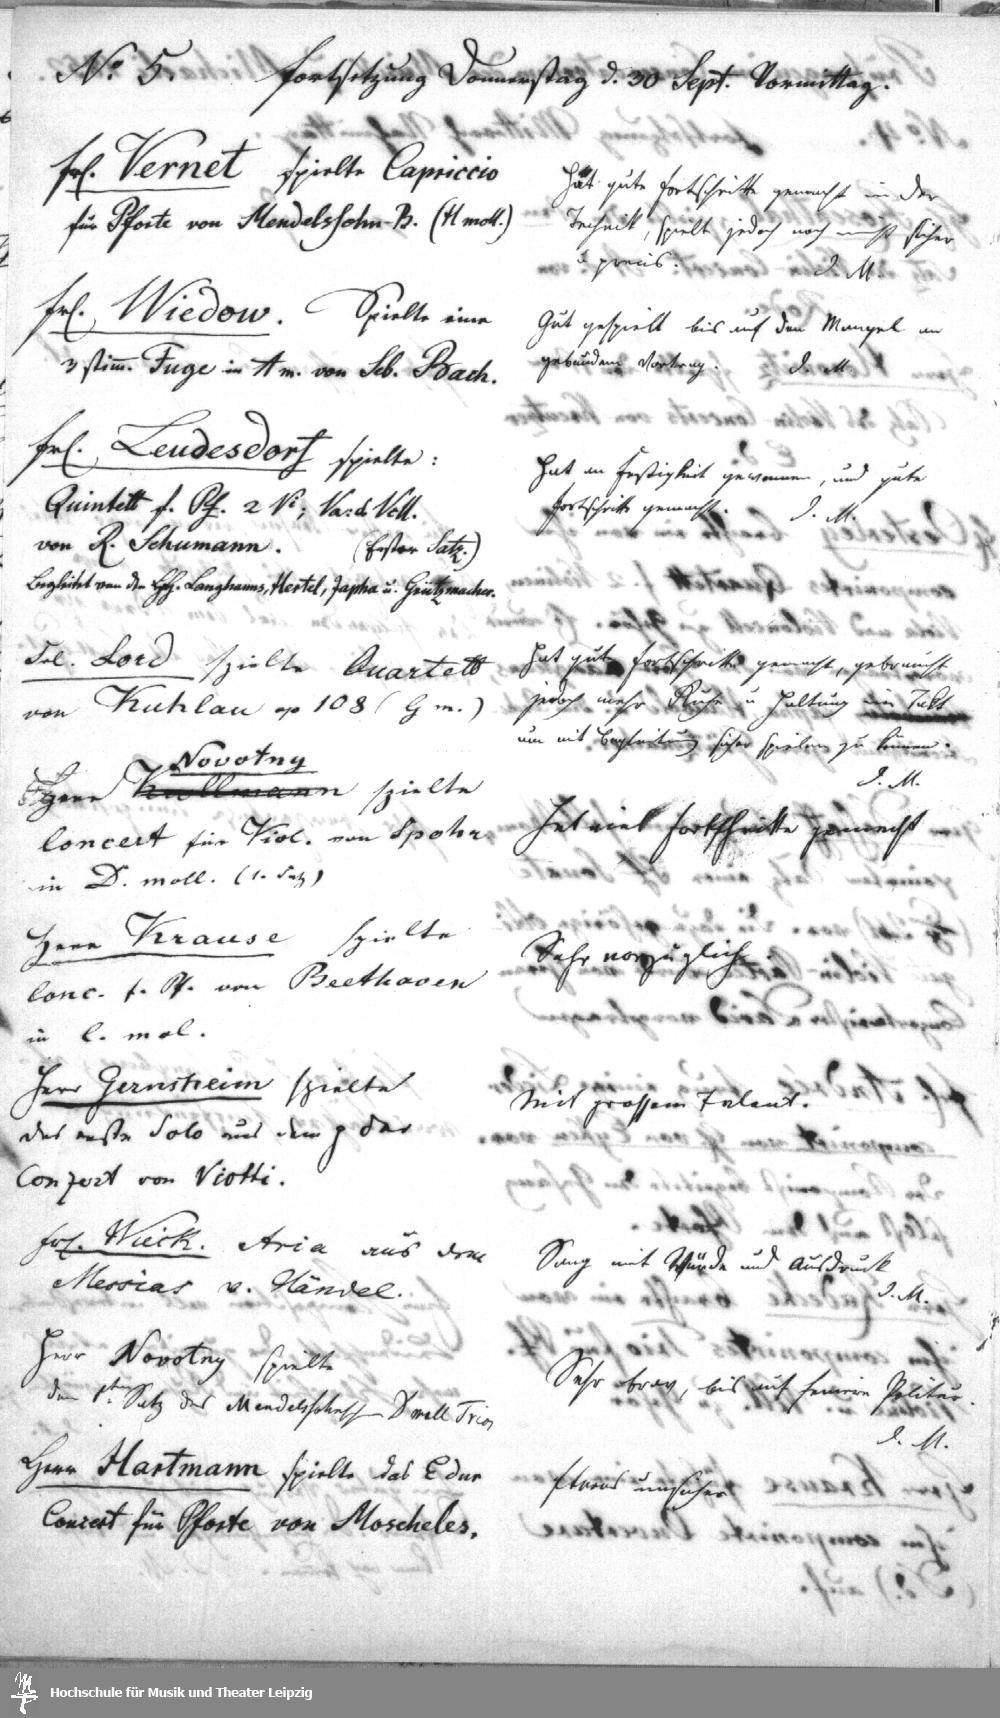 No. 5. Fortsetzung Donnerstag d. 30 Sept. Vormittag.
Frl. Vernet spielte Capriccio
für Pforte von Mendelssohn-B. (H moll.)
Hat gute Fortschritte gemacht in der
Technik, spielt jedoch noch nicht sicher
u. precis. J. M.
Frl. Wiedow. Spielte eine
3 stim. Fuge in A m. von Seb. Bach.
Gut gespielt bis auf den Mangel an
gebundenem Vortrag. J. M.
Frl. Leudesdorf spielte:
Quintett f. Pf. 2 Vi; Va. & Vcll.
von R. Schumann. (Erster Satz.)
Begleitet von den HH. Langhanns, Hertel, Japha u. Grützmacher.
Hat an Festigkeit gewonnen, und gute
Fortschritte gemacht. J. M.
Frl. Lord spielte Quartett
von Kuhlau op 108 (G m.)
Hat gute Fortschritte gemacht, gebraucht
jedoch mehr Ruhe u Haltung im Takt
um mit Begleitung sicher spielen zu können.
J. M.
Novotny
Herr Kullmann spielte
Concert für Viol. von Spohr
in D. moll. (1. Satz)
Hat viel Fortschritte gemacht
Herr Krause spielte
Conc. f. Pf. von Beethoven
in C. mol.
Sehr vorzüglich.
Herr Gernsheim spielte
das erste Solo aus dem
Conzert von Viotti.
Mit grossem Talent.
Frl. Wieck. Aria aus dem
Messias v. Händel.
Sang mit Würde und Ausdruck
J. M.
Herr Novotny spielte
den 1ten Satz des Mendelssohnschen D moll Trios
Sehr brav, bis auf feinere Politur.
J. M.
Herr Hartmann spielte das E dur
Concert für Pforte von Moscheles.
Etwas unsicher
Hochschule für Musik und Theater Leipzig